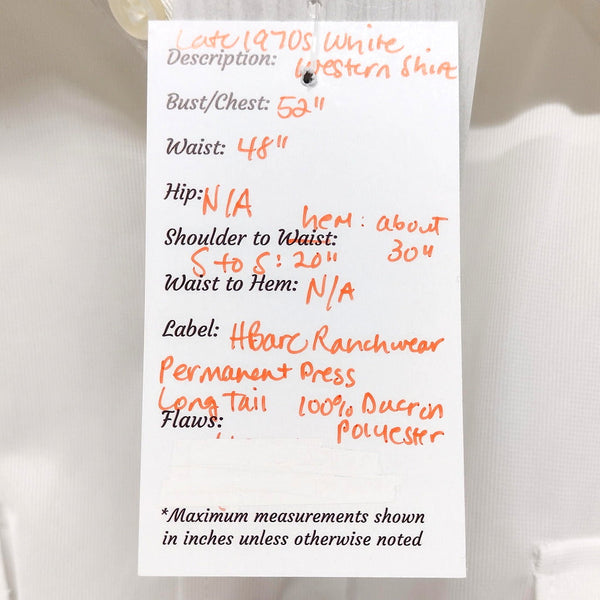 Late 1970s White
Description: Western Shirt
Bust/Chest: 52"
Waist: 48"
Hip: N/A
hem: about
Shoulder to Waist: 30"
S to S: 20"
Waist to Hem: N/A
Label: HBarC Ranchwear
Permanent Press
Long Tail 100% Dacron
Flaws: Polyester
*Maximum measurements shown
in inches unless otherwise noted